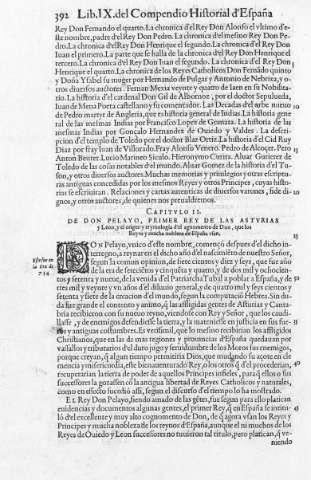 392 Lib.IX. del Compendio Historial d'España
Rey Don Fernando el quarto. La chronica d'el Rey Don Alonso el vltimo d'e-
ste nombre, padre d'el Rey Don Pedro. La chronica d'el mesmo Rey Don Pe-
dro. La chronica d'el Rey Don Henrique el segundo. La chronica d'el Rey Don
Iuan el primero. La parte que se halla de la chronica d'el Rey Don Henrique el
tercero. La chronica d'el Rey Don Iuan el segundo. La chronica d'el Rey Don
Henrique el quarto. La chronica de los Reyes Catholicos Don Fernādo quinto
y Doña Ysabel su muger por Hernando de Pulgar y Antonio de Nebrixa, y o-
tros diuersos auctores. Fernan Mexia veynte y quatro de Iaen en su Nobilia-
rio. La historia d'el cardenal Don Gil de Albornoz, por el doctor Sepulueda,
Iuan de Mena Poeta castellano y su comentador. Las Decadas d'el orbe nueuo
de Pedro martyr de Angleria, que es historia general de Indias. La historia gene
ral de las mesmas Indias por Francisco Lopez de Gomara. La historia de las
mesmas Indias por Gonçalo Hernandez de Ouiedo y Valdes. La descri-
pcion d'el templo de Toledo por el doctor Blas Ortiz. La historia d'el Cid Ruy
Diaz por fray Iuan de Villorado. Fray Alonso Venero. Pedro de Alcoçer. Pero
Anton Beuter. Lucio Marineo Siculo. Hieronymo Çurita. Aluar Gutierrez de
Toledo de las cosas notables d'el mundo. Aluar Gomez de la historia d'el Tu-
son, y otros diuersos auctores. Muchas memorias y priuilegios y otras escriptu-
ras antiguas concedidas por los mesmos Reyes y otros Principes, cuyas histo-
rias se escriuiran. Relaciones y cartas autenticas de diuersos varones, fide di-
gnos, y otros auctores, de quienes nos preualdremos.
CAPITVLO II.
DE DON PELAYO, PRIMER REY DE LAS ASTVRIAS
y Leon, y el origen y etymologia d'el agnomento de Don, que los
Reyes y mucha nobleza de España vsan.
DOn Pelayo, vnico d'este nombre, començó despues d'el dicho in-
terregno, a reynar en el dicho año d'el nascimiento de nuestro Señor,
segun la comun opinion, de sete cientos y diez y seys, que fue año
de la era de setecientos y cinquēta y quatro, y de dos mil y ochocien-
tos y setenta y nueue, de la venida d'el Patriarcha Tubal a poblar a España, y de
tres mil y veynte y vn años d'el diluuio general, y de quatro mil y seys cientos y
setenta y siete de la creacion d'el mundo, segun la computació Hebrea. Sin du-
da fue grande el contento y animo, q̃ las affligidas gentes de Asturias y Canta-
bria recibieron con su nueuo reyno, viendose con Rey y Señor, que los caudi-
llasse, y de enemigos defendiesse la tierra, y la mantuuiesse en justicia en sus fue-
ros y antiguas costumbres. Es verisimil, que lo mesmo recibirian los affligidos
Christianos, que en las de mas regiones y prouincias d'España quedauan por
vassallos y tributarios d'el duro jugo y seruidumbre de los Moros sus enemigos,
porque creyan, q̃ algun tiempo permitiria Dios, que mudando su açote en cle-
mencia y misericordia, este bienauenturado Rey, o los otros q̃ d'el procederian,
recuperarian la tierra de poder de aquellos Principes infieles, para q̃ ellos o sus
successores la gozassen có la antigua libertad de Reyes Catholicos y naturales,
como en effecto succedió assi, segun el discurso d'el tiempo lo ha mostrado.
EL Rey Don Pelayo, siendo amado de las gētes, fue segun para ello platican
euidencias y documentos algunas gentes, el primer Rey, q̃ en España se intitu-
ló d'el excelente y muy alto cognomento de Don, de q̃ agora vsan los Reyes y
Principes y mucha nobleza de los reynos d'España, aunque ni muchos de los
Reyes de Ouiedo y Leon successores no tuuieron tal titulo, pero platican, q̃ ve-
niendo